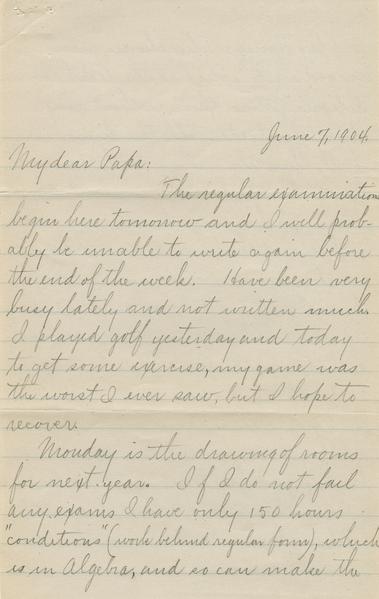 June 7, 1904.
My dear Papa:
The regular examinations
begin here tomorrow and I will prob-
ably be unable to write again before
the end of the week. Have been very
busy lately and not written much.
I played golf yesterday and today
to get some exercise, my game was
the worst I ever saw, but I hope to
recover.
Monday is the drawing of rooms
for next year. If I do not fail
any exams I have only 150 hours
"conditions" (work behind regular form), which
is in Algebra, and so can make the